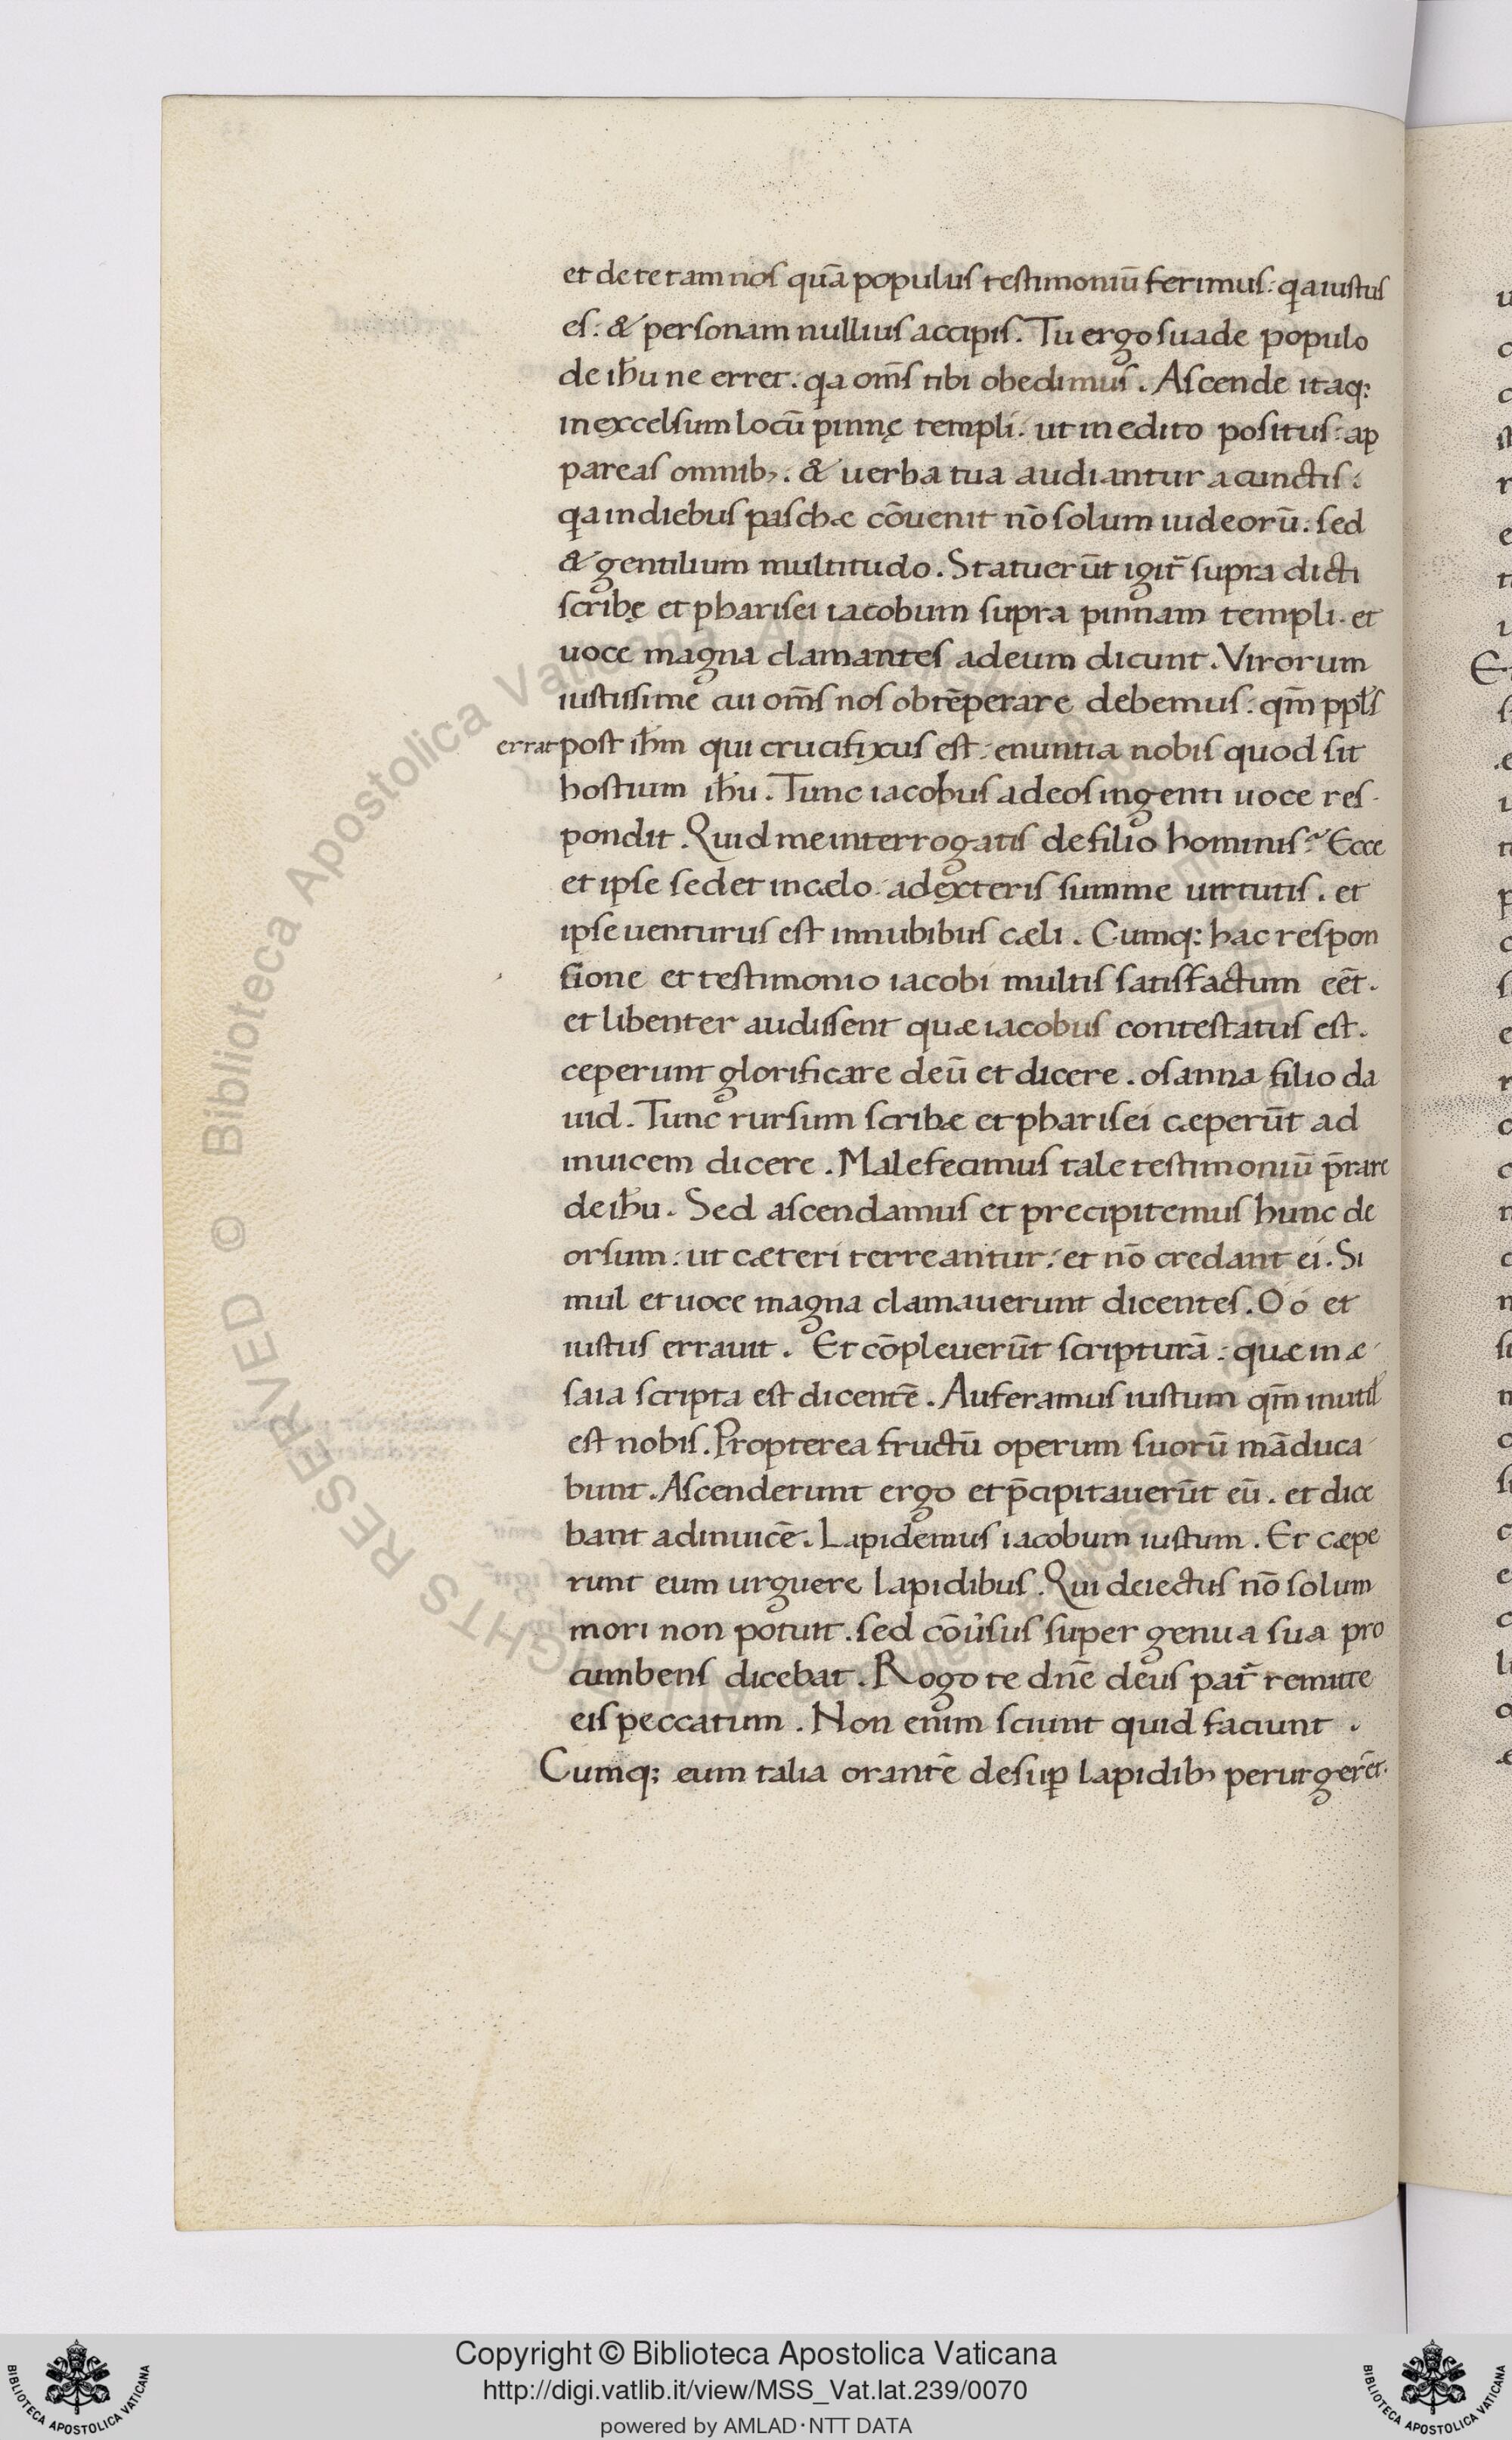 et de te tam nos quā populus testimoniū ferimus: qa iustus
es: & personam nullius accipis. Tu ergo suade populo
de ihu ne erret. qa om̄s tibi obedimus. Ascende itaq:
in excelsum locū pinnę templi. ut in edito positus: ap
pareas omnib;. & uerba tua audiantur a cunctis.
qa in diebus paschæ cōuenit nō solum iudeorū. sed
& gentilium multitudo. Statuerūt igit̄ supra dicti
scribę et pharisei iacobum supra pinnam templi. et
uoce magna clamantes ad eum dicunt. Virorum
iustissime cui om̄s nos obtēperare debemus: qm̄ ppls
errat post ihm qui crucifixus est. enuntia nobis quod sit
hostium ihu. Tunc iacobus ad eos ingenti uoce res
pondit. Quid me interrogatis de filio hominis? Ecce
et ipse sedet in cælo. ad exteris summe uirtutis. et
ipse uenturus est in nubibus cæli. Cumq: hac respon
sione et testimonio iacobi multis satisfactum eēt.
et libenter audissent quæ iacobus contestatus est.
ceperunt glorificare deū et dicere. osanna filio da
uid. Tunc rursum scribæ et pharisei cæperūt ad
inuicem dicere. Male fecimus tale testimoniū p̄rare
de ihu. Sed ascendamus et precipitemus hunc de
orsum. ut cæteri terreantur. et nō credant ei. Si
mul et uoce magna clamauerunt dicentes. O ó et
iustus errauit. Et cōpleuerūt scripturā. quæ in æ
saia scripta est dicentē. Auferamus iustum qm̄ inutil
est nobis. Propterea fructū operum suorū māduca
bunt. Ascenderunt ergo et p̄cipitauerūt eū. et dice
bant ad inuicē. Lapidemus iacobum iustum. Et cæpe
runt eum urguere lapidibus. Qui deiectus nō solum
mori non potuit. sed cōu̇sus super genua sua pro
cumbens dicebat. Rogo te dn̄e deus pat̄ remitte
eis peccatum. Non enim sciunt quid faciunt.
Cumq; eum talia orantē desup̱ lapidib; perurgerēt.
© Biblioteca Apostolica Vaticana ALL RIGHTS RESERVED
Copyright © Biblioteca Apostolica Vaticana
http://digi.vatlib.it/view/MSS_Vat.lat.239/0070
powered by AMLAD·NTT DATA
BIBLIOTECA APOSTOLICA VATICANA
BIBLIOTECA APOSTOLICA VATICANA